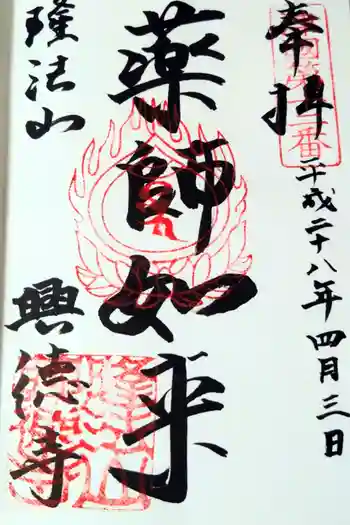 奉拝
平成二十八年四月三日
薬師如来
瑾法山
興徳寺